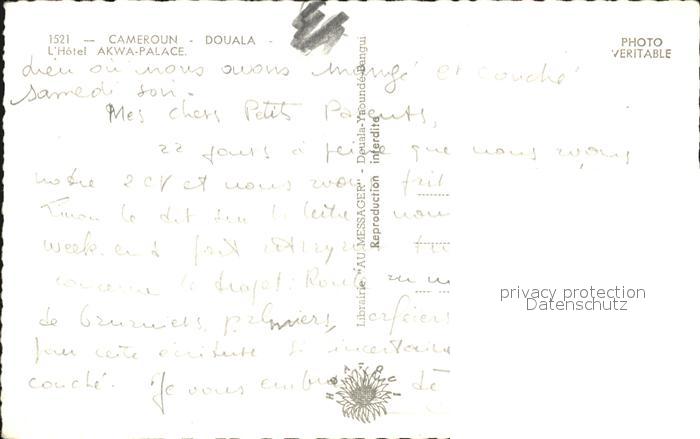 1521 — CAMEROUN - DOUALA -
L'Hôtel AKWA-PALACE.
PHOTO
VERITABLE
lieu où nous avons mangé et couché
samedi soir.
Mes chers Petits Parents,
22 jours à peine que nous avons
notre 2 CV et nous avons fait
le dit la lettre nous
week-end fort
concerne le trajet : Route
de bananiers, palmiers, caféiers
pour cette écriture si incertaine
couché. Je vous embrasse
Librairie "AU MESSAGER" - Douala-Yaoundé-Bangui
Reproduction interdite
privacy protection
Datenschutz